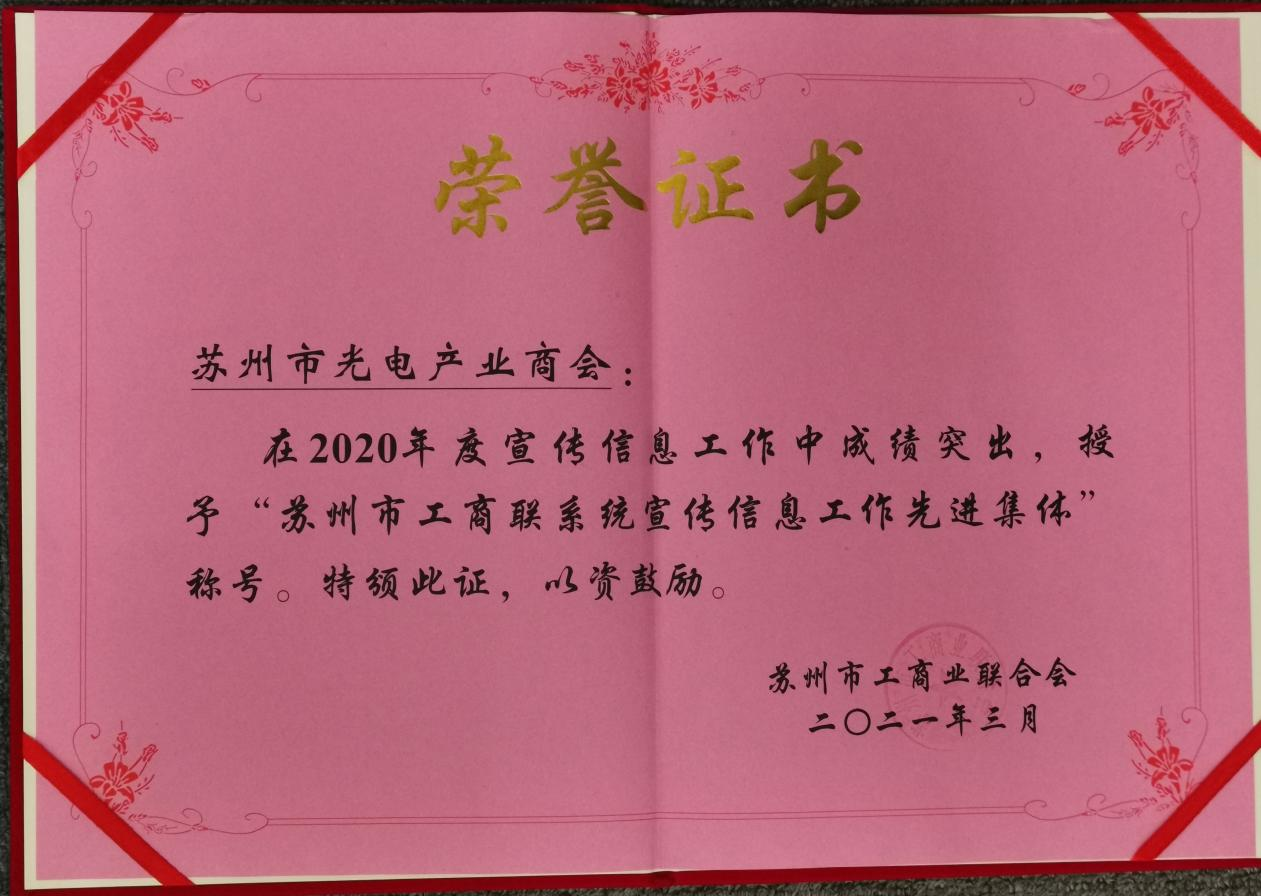 荣誉证书
苏州市光电产业商会：
在2020年度宣传信息工作中成绩突出，授
予“苏州市工商联系统宣传信息工作先进集体”
称号。特颁此证，以资鼓励。
苏州市工商业联合会
二〇二一年三月